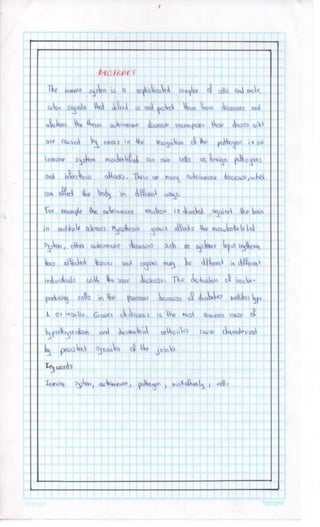 ABSTRACT
The immune system is a sophisticated complex of cells and mole
cular signals that defend us and protect them from diseases and
infections the thems autoimmune disease encompases these diseases with
are caused by errors in the recognition of the pathogen it or
immune system misidentified our own cells as foreign pathogens
and infectious attacks. There are many autoimmune disease, which
can affect the body in different ways.
For example the autoimmune reaction is directed against the brain
in multiple sclerosis Myasthenia gravis affects the musculoskeletal
system, others autoimmune diseases such as systemic lupus erythema
tous affected tissues and organs may be different in different
individuals with the same disease. The destruction of insulin-
producing cells in the pancreas because of diabetes mellitus type
1 or insulin. Graves disease is the most common cause of
hyperthyroidism and rheumatoid arthritis cause characterized
by persistent synovitis of the joints.
Keywords
Immune system, autoimmune, pathogen,